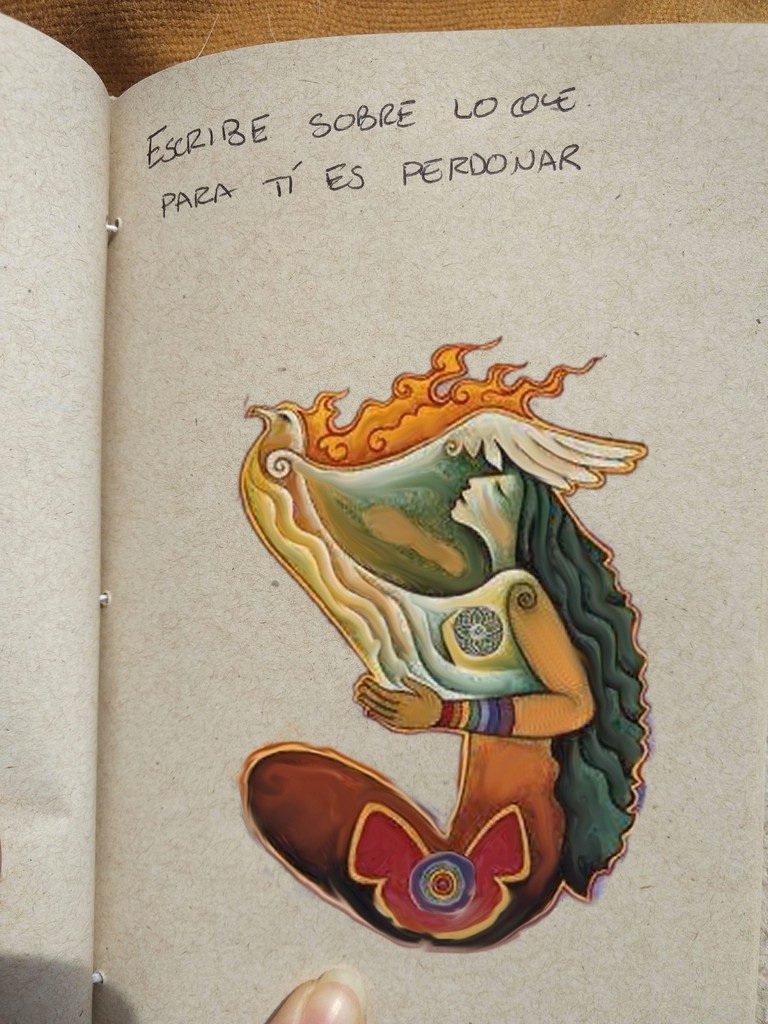 ESCRIBE SOBRE LO QUE
PARA TÍ ES PERDONAR